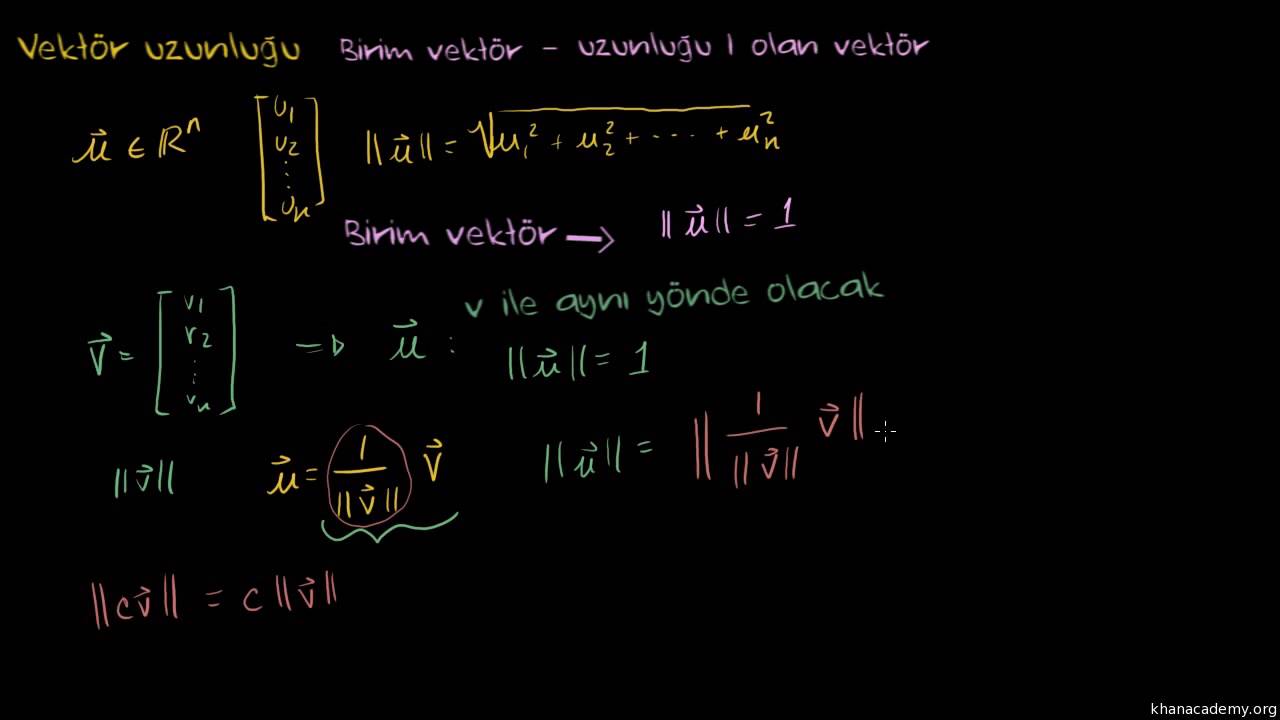 Vektör uzunluğu Birim vektör - uzunluğu 1 olan vektör
u⃗ ∈ ℝⁿ [u₁ u₂ ⋮ uₙ] ||u⃗|| = √(u₁² + u₂² + ···· + uₙ²)
Birim vektör → ||u⃗|| = 1
v ile aynı yönde olacak
v⃗ = [v₁ v₂ ⋮ vₙ] ⇒ u⃗ : ||u⃗|| = 1
||v⃗|| u⃗ = 1/||v⃗|| v⃗ ||u⃗|| = || 1/||v⃗|| v⃗ ||
||cv⃗|| = c ||v⃗||
khanacademy.org